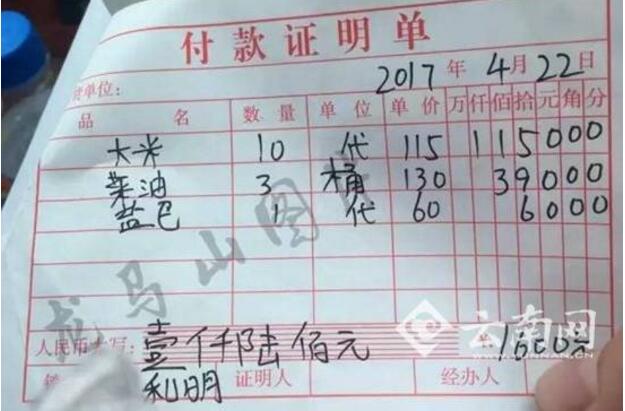 付款证明单
2017 年 4 月 22 日
货单位:
品 名 数 量 单 位 单 价 万 仟 佰 拾 元 角 分
大米 10 代 115 1 1 5 0 0 0
菜油 3 桶 130 3 9 0 0 0
盐巴 1 代 60 6 0 0 0
龙马山图
云南网
YUNNAN.CN
人民币大写: 壹仟陆佰元 1600元
利明 证明人 经办人